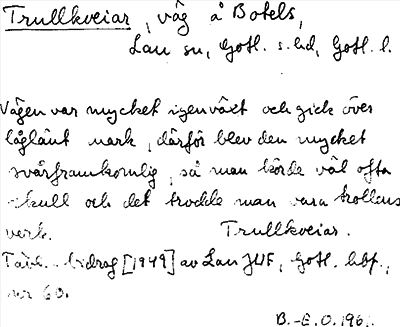 Trullkveiar, väg å Botels,
Lau sn, Gotl. s. hd, Gotl. l.
Vägen var mycket igenväxt och gick över
låglänt mark, därför blev den mycket
svårframkomlig, så man körde väl ofta
kull och det trodde man vara trollens
verk. Trullkveiar.
[1949] av Lau JUF, Gotl. hbf.,
nr 60.
B.-E. O. 196